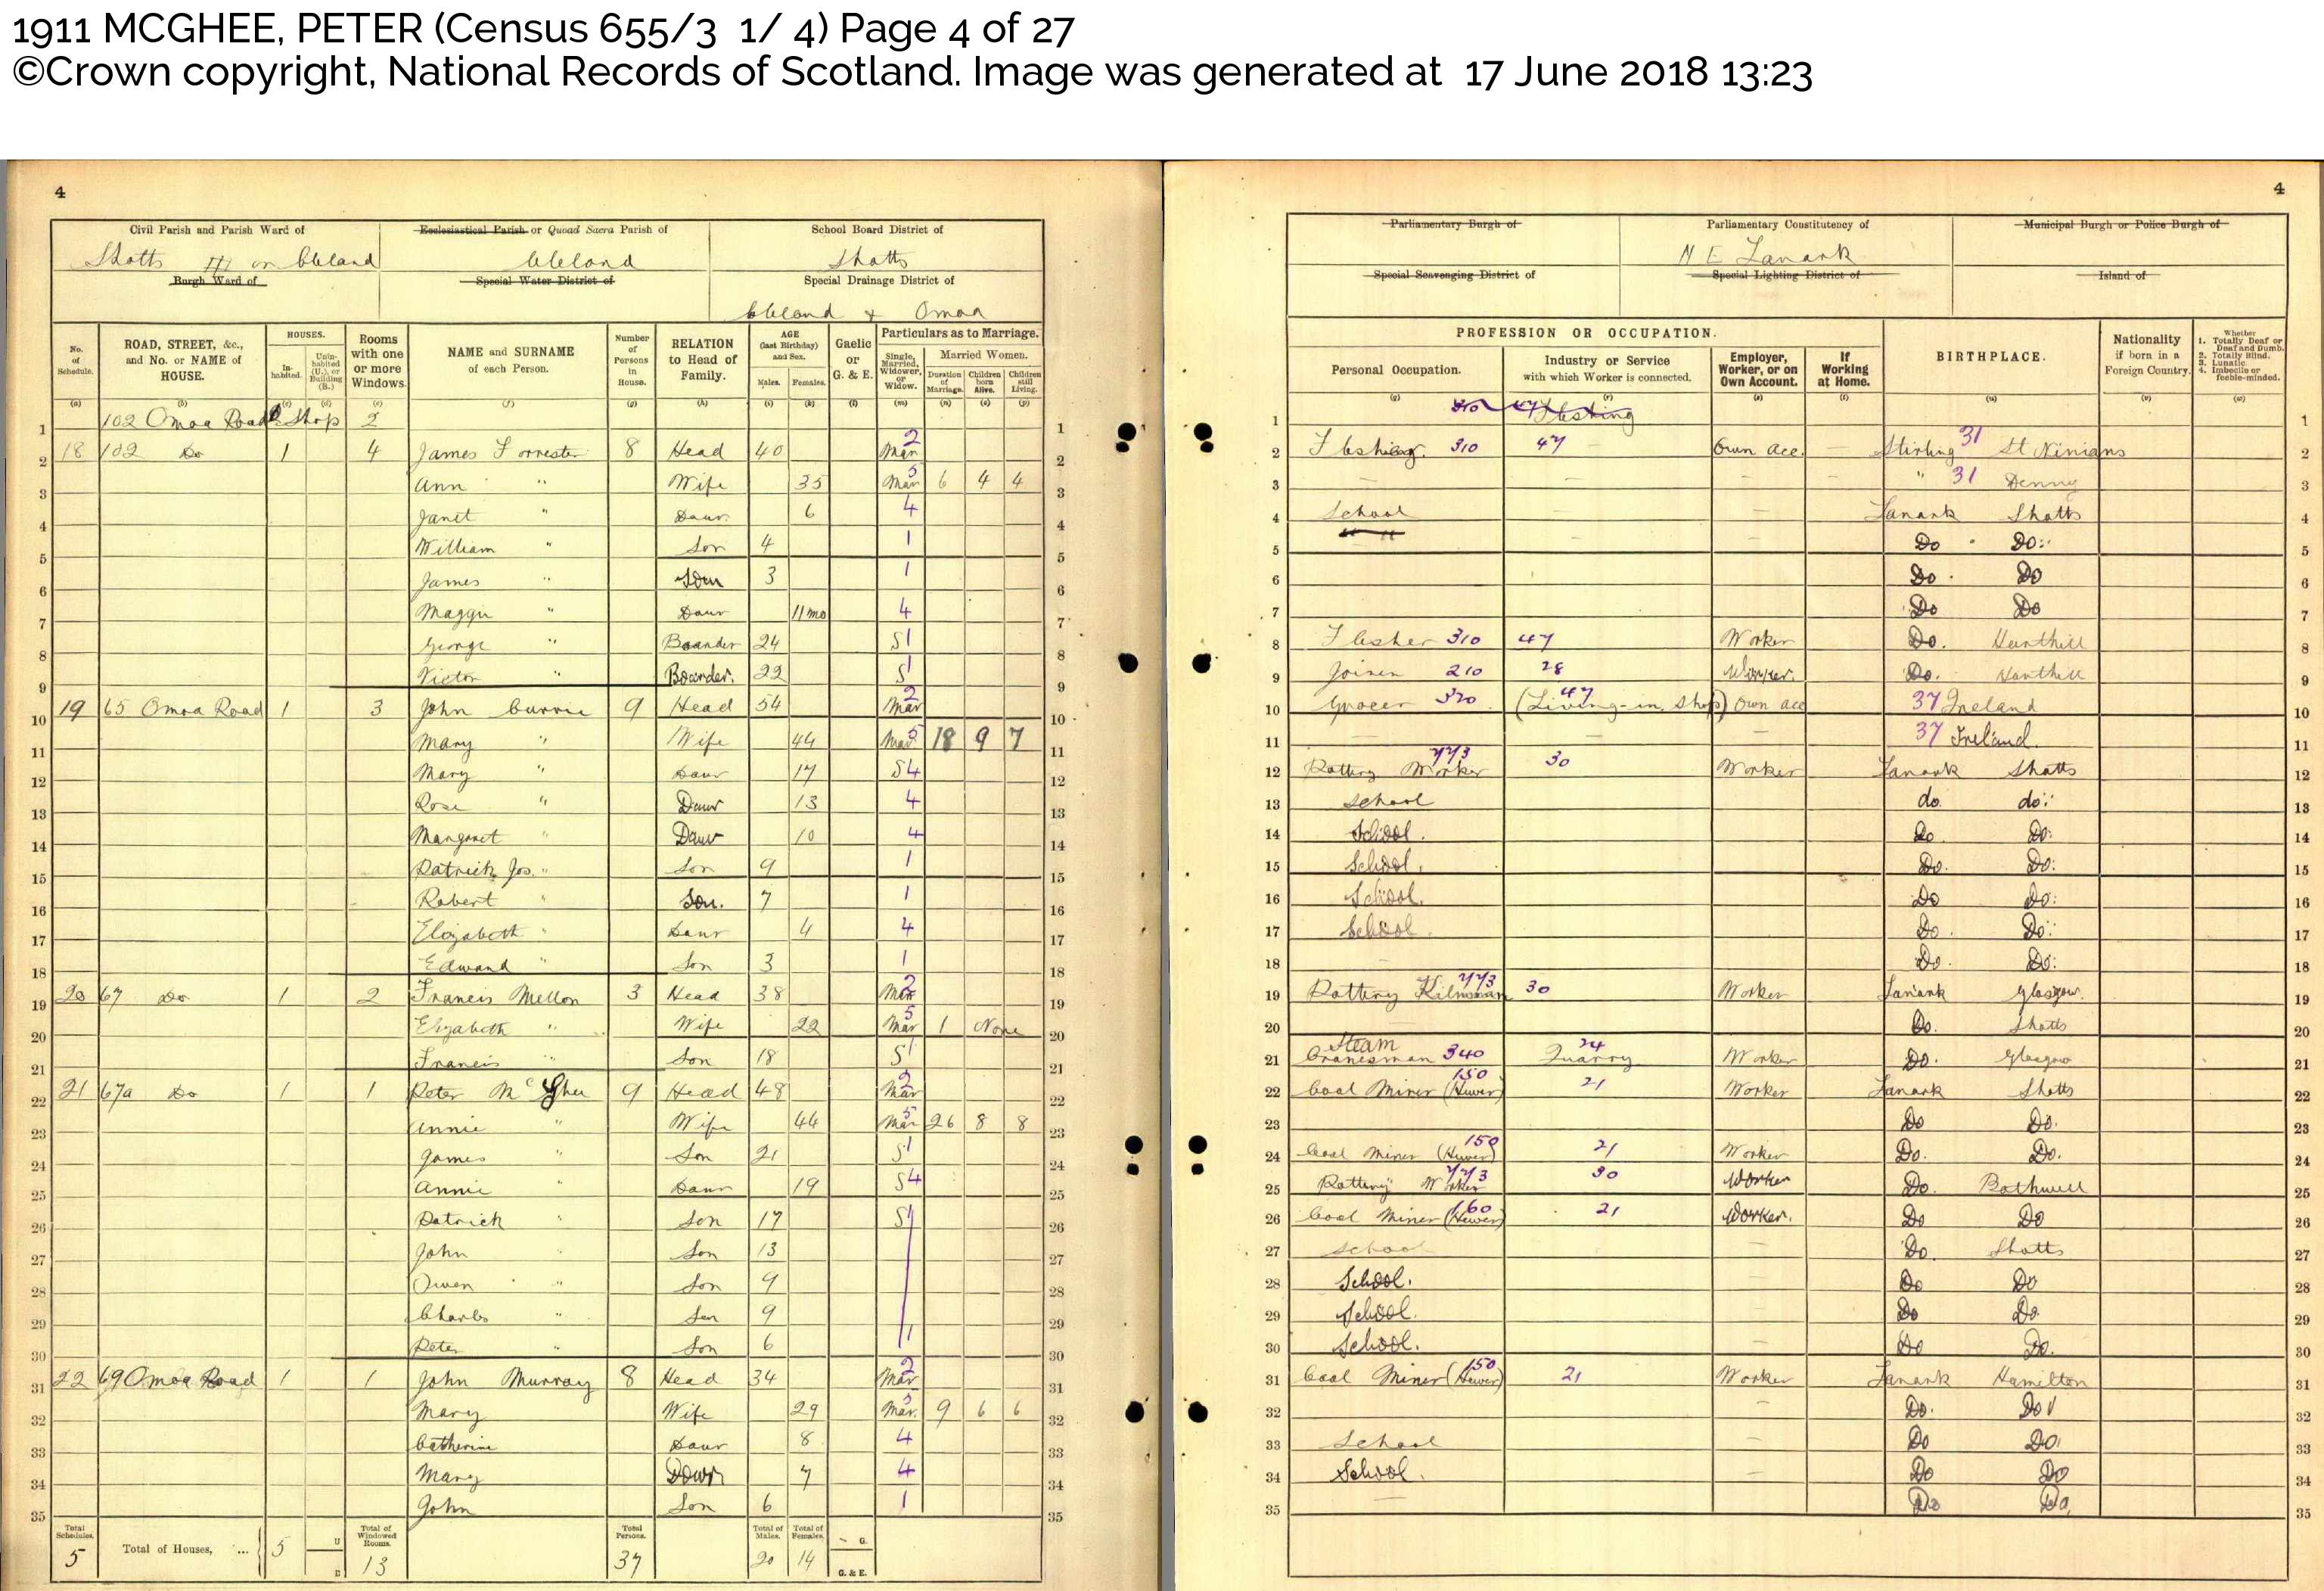 1911 MCGHEE, PETER (Census 655/3 1/ 4) Page 4 of 27
©Crown copyright, National Records of Scotland. Image was generated at 17 June 2018 13:23
4
Civil Parish and Parish Ward of Ecclesiastical Parish or Quoad Sacra Parish of School Board District of
Shotts III or Cleland Cleland Shotts
Burgh Ward of Special Water District of Special Drainage District of
Cleland & Omoa
No. of Schedule. ROAD, STREET, &c., and No. or NAME of HOUSE. HOUSES. Inhabited. Uninhabited (U.), or Building (B.) Rooms with one or more Windows. NAME and SURNAME of each Person. Number of Persons in House. RELATION to Head of Family. AGE (last Birthday) and Sex. Males. Females. Gaelic or G. & E. Particulars as to Marriage. Single, Married, Widower, or Widow. Married Women. Duration of Marriage. Children born Alive. Children still Living.
1 102 Omoa Road Shop 2 1
2 18 102 Do 1 4 James Forrester 8 Head 40 Mar 2 2
3 Ann " Wife 35 Mar 5 6 4 4 3
4 Janet " Daur. 6 4 4
5 William " Son 4 1 5
6 James " Son 3 1 6
7 Maggie " Daur 11 mo 4 7
8 George " Boarder 24 S 1 8
9 Victor " Boarder. 22 S 1 9
10 19 65 Omoa Road 1 3 John Currie 9 Head 54 Mar 2 10
11 Mary " Wife 44 Mar 5 18 9 7 11
12 Mary " Daur 17 S 4 12
13 Rose " Daur 13 4 13
14 Margaret " Daur 10 4 14
15 Patrick Jos. " Son 9 1 15
16 Robert " Son. 7 1 16
17 Elizabeth " Daur 4 4 17
18 Edward " Son 3 1 18
19 20 67 Do 1 2 Francis Mellon 3 Head 38 Mar 2 19
20 Elizabeth " Wife 22 Mar 5 1 None 20
21 Francis " Son 18 S 1 21
22 21 67a Do 1 1 Peter McGhee 9 Head 48 Mar 2 22
23 Annie " Wife 44 Mar 5 26 8 8 23
24 James " Son 21 S 1 24
25 Annie " Daur 19 S 4 25
26 Patrick " Son 17 S 1 26
27 John " Son 13 27
28 Owen " Son 9 28
29 Charles " Son 9 29
30 Peter " Son 6 1 30
31 22 69 Omoa Road 1 1 John Murray 8 Head 34 Mar 2 31
32 Mary Wife 29 Mar. 5 9 6 6 32
33 Catherine Daur 8 4 33
34 Mary Daur 7 4 34
35 John Son 6 1 35
Total Schedules. 5 Total of Houses, ... 5 U B Total of Windowed Rooms. 13 Total Persons. 37 Total of Males. 20 Total of Females. 14 G. G. & E.
4
Parliamentary Burgh of Parliamentary Constituency of Municipal Burgh or Police Burgh of
N E Lanark
Special Scavenging District of Special Lighting District of Island of
PROFESSION OR OCCUPATION. Personal Occupation. Industry or Service with which Worker is connected. Employer, Worker, or on Own Account. If Working at Home. BIRTHPLACE. Nationality if born in a Foreign Country. Whether 1. Totally Deaf or Deaf and Dumb. 2. Totally Blind. 3. Lunatic. 4. Imbecile or feeble-minded.
1 310 47 Fleshing 1
2 Fleshing. 310 47 Own Acc. Stirling 31 St Ninians 2
3 " 31 Denny 3
4 School Lanark Shotts 4
5 Do Do 5
6 Do Do 6
7 Do Do 7
8 Flesher 310 47 Worker Do. Harthill 8
9 Joiner 210 28 Worker. Do. Harthill 9
10 Grocer 320 (Living-in Shop) 47 Own acc 37 Ireland 10
11 37 Ireland. 11
12 Pottery Worker 773 30 Worker Lanark Shotts 12
13 School do do 13
14 School. Do. Do. 14
15 School. Do. Do. 15
16 School. Do Do. 16
17 School. Do. Do. 17
18 Do. Do. 18
19 Pottery Kilnsman 773 30 Worker Lanark Glasgow. 19
20 Do. Shotts 20
21 Steam Cranesman 340 Quarry 24 Worker Do. Glasgow 21
22 Coal Miner (Hewer) 150 21 Worker Lanark Shotts 22
23 Do Do. 23
24 Coal Miner (Hewer) 150 21 Worker Do. Do. 24
25 Pottery Worker 773 30 Worker Do. Bothwell 25
26 Coal Miner (Hewer) 160 21 Worker. Do Do 26
27 School Do. Shotts 27
28 School. Do Do 28
29 School. Do Do. 29
30 School. Do Do. 30
31 Coal Miner (Hewer) 150 21 Worker Lanark Hamilton 31
32 Do. Do 32
33 School Do Do 33
34 School. Do Do 34
35 Do Do 35